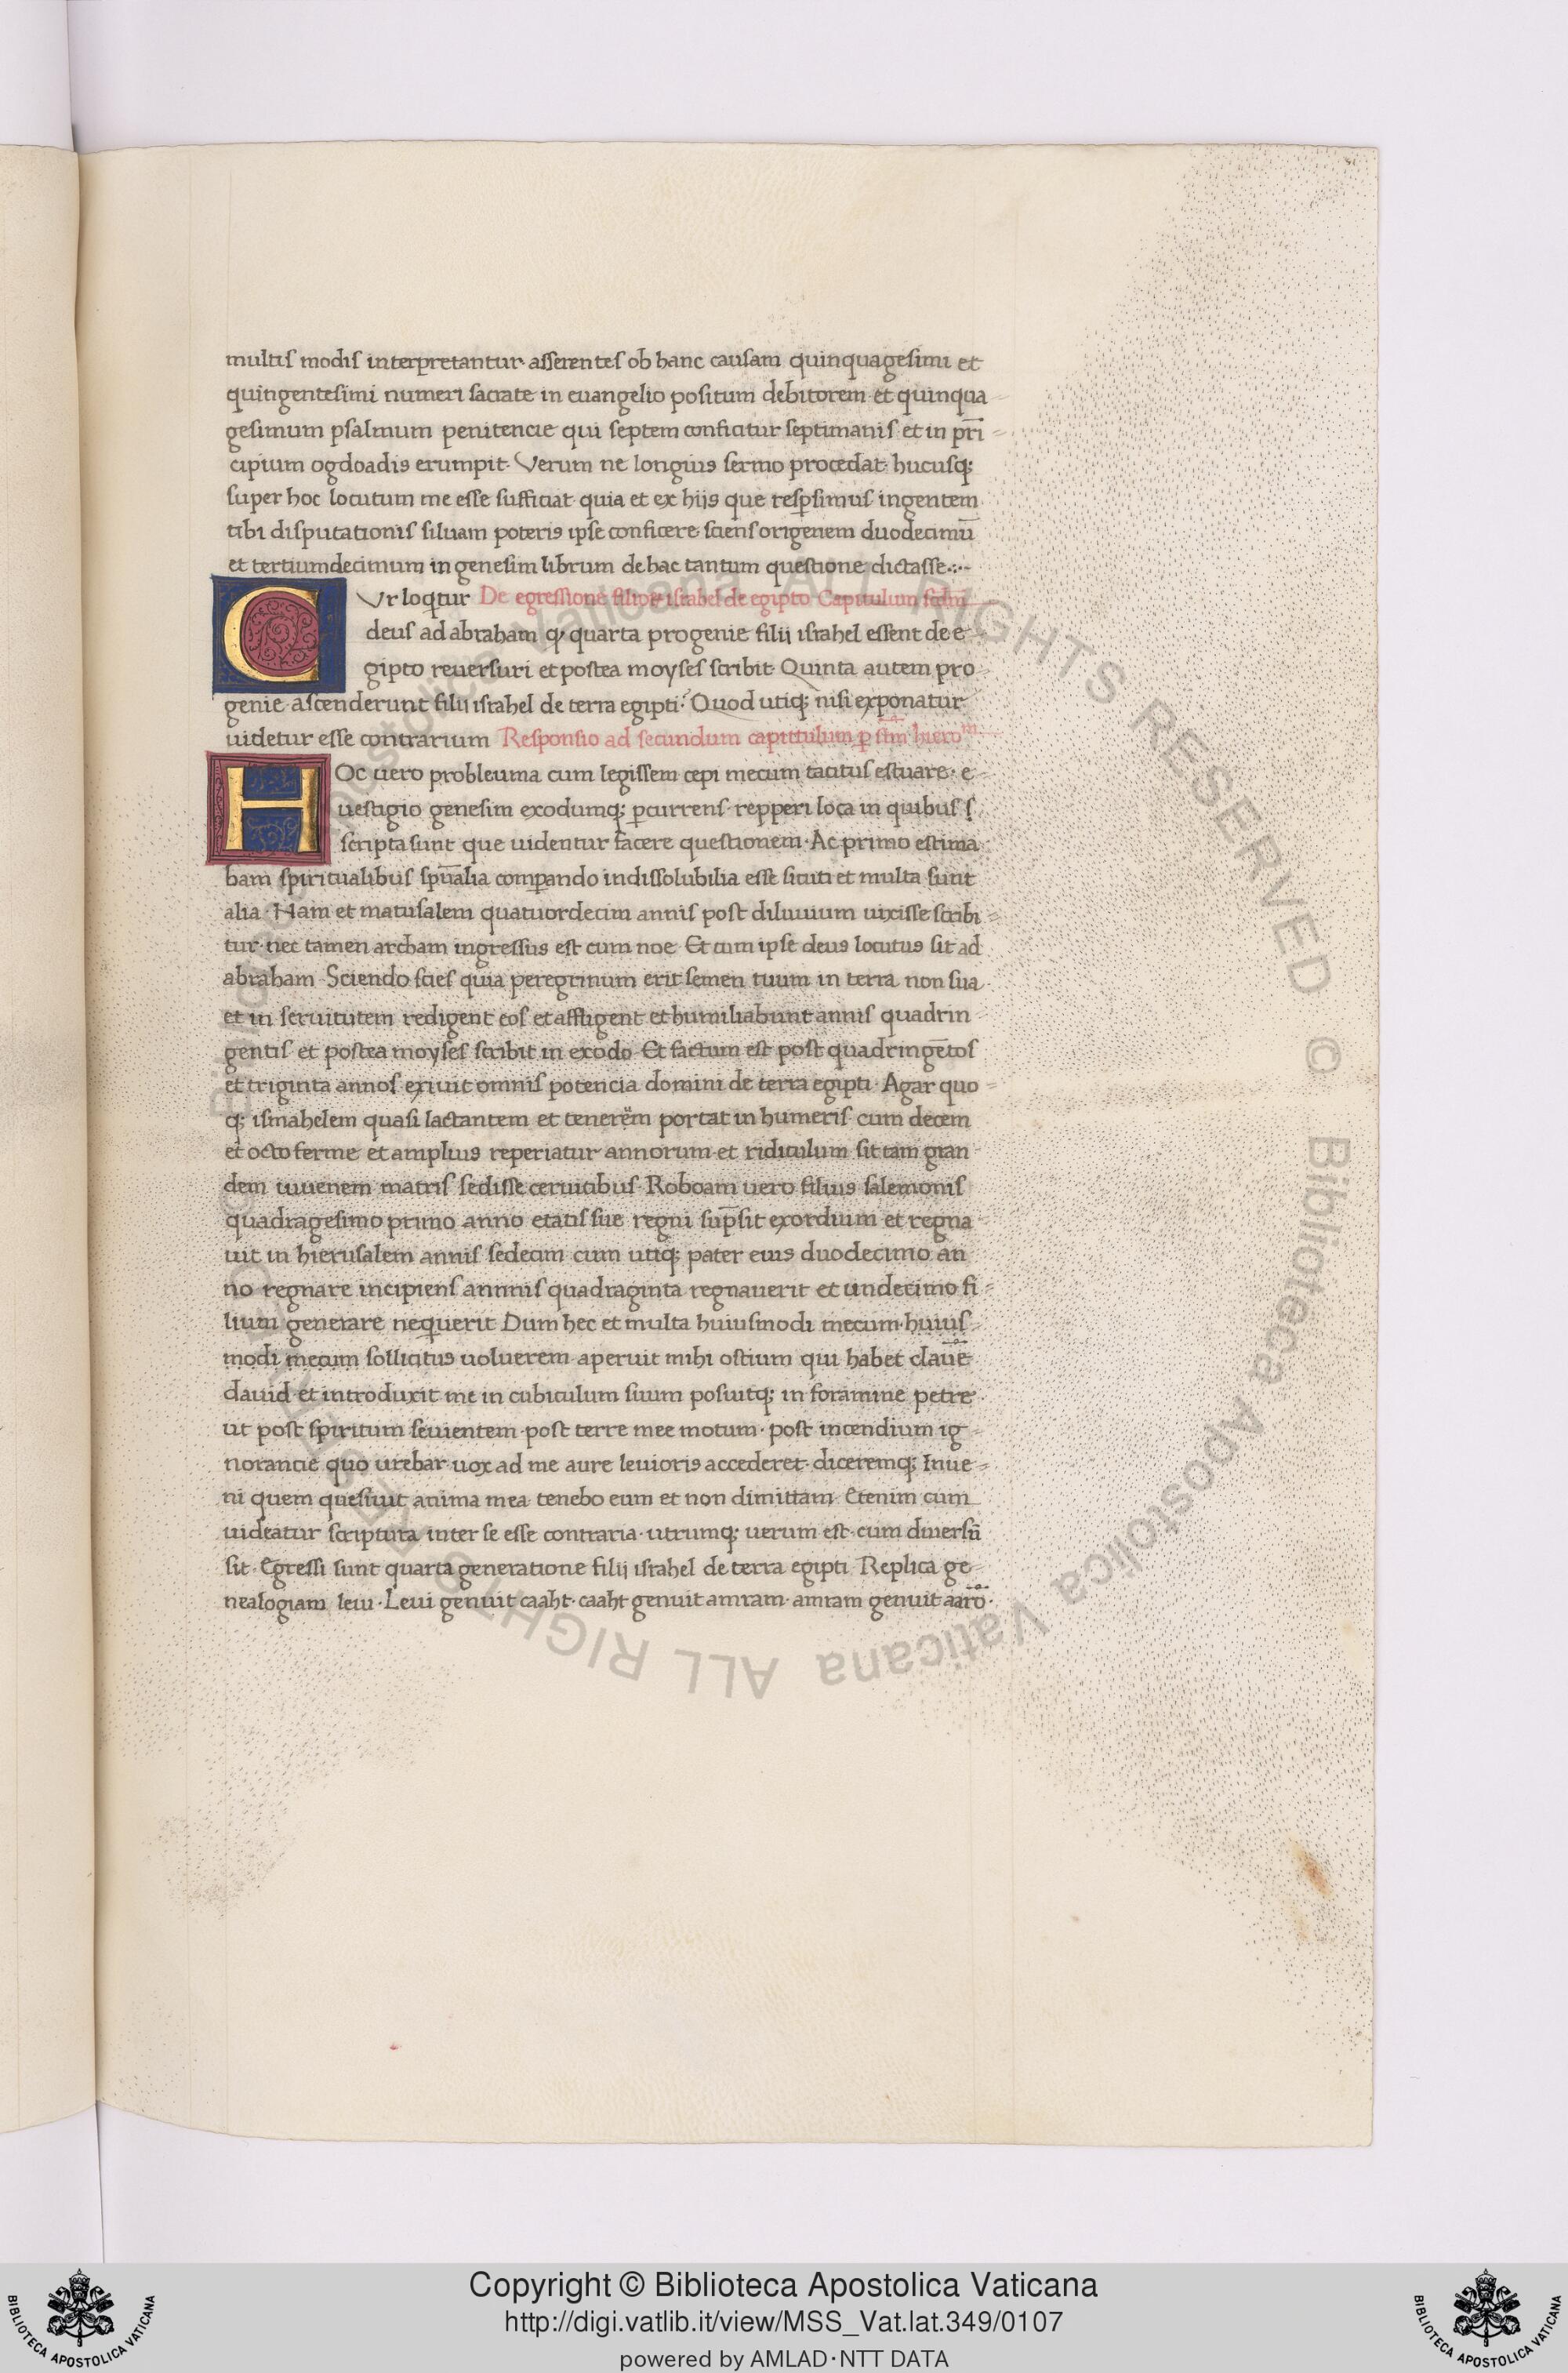 multis modis interpretantur· asserentes ob hanc causam quinquagesimi et
quingentesimi numeri sacrate in euangelio positum debitorem et quinqua
gesimum psalmum penitencie qui septem conficitur septimanis et in prī
cipium ogdoadis erumpit· Verum ne longius sermo procedat· hucusq;
super hoc locutum me esse sufficiat· quia et ex hijs que resꝑsimus ingentem
tibi disputationis siluam poteris ipse conficere· sciens origenem duodecimū
et tertiumdecimum in genesim librum de hac tantum questione dictasse
CVr loqtur De egressione filioꝝ israhel de egipto Capitulum scdm
deus ad abraham ꝙ quarta progenie filij israhel essent de e
gipto reuersuri et postea moyses scribit· Quinta autem pro
genie ascenderunt filij israhel de terra egipti· Quod utiq; nisi exponatur
uidetur esse contrarium Responsio ad secundum capittulum ꝑ sm̄ hieroᵐ
HOc uero probleuma cum legissem cepi mecum tacitus estuare· e
uestigio genesim exodumq; ꝑcurrens· repperi loca in quibus s
scripta sunt que uidentur facere questionem· Ac primo estima
bam spiritualibus spūalia comꝑando indissolubilia esse sicuti et multa sunt
alia· Nam et matusalem quatuordecim annis post diluuium uixisse scribi
tur· nec tamen archam ingressus est cum noe· Et cum ipse deus locutus sit ad
abraham· Sciendo scies quia peregrinum erit semen tuum in terra non sua
et in seruitutem redigent eos et affligent et humiliabunt annis quadrin
gentis et postea moyses scribit in exodo· Et factum est post quadringētos
et triginta annos exiuit omnis potencia domini de terra egipti· Agar quo
q; ismahelem quasi lactantem et tenerem portat in humeris· cum decem
et octo ferme et amplius reperiatur annorum et ridiculum sit tam gran
dem iuuenem matris sedisse ceruicibus· Roboam uero filius salemonis
quadragesimo primo anno etatis sue regni sup̄sit exordium et regna
uit in hierusalem annis sedecim cum utiq; pater eius duodecimo an
no regnare incipiens annnis quadraginta regnauerit et undecimo fi
lium generare nequerit Dum hec et multa huiusmodi mecum· huius
modi mecum sollicitus uoluerem aperuit mihi ostium qui habet clauē
dauid et introduxit me in cubiculum suum posuitq; in foramine petre·
ut post spiritum seuientem· post terre mee motum· post incendium ig
norancie quo urebar uox ad me aure leuioris accederet· diceremq; Inue
ni quem quesiuit anima mea tenebo eum et non dimittam· Etenim cum
uideatur scriptura inter se esse contraria· utrumq; uerum est· cum diuersū
sit· Egressi sunt quarta generatione filij israhel de terra egipti Replica ge
nealogiam leui· Leui genuit caaht· caaht genuit amram· amram genuit aarō·
Copyright © Biblioteca Apostolica Vaticana
http://digi.vatlib.it/view/MSS_Vat.lat.349/0107
powered by AMLAD·NTT DATA
BIBLIOTECA APOSTOLICA VATICANA
BIBLIOTECA APOSTOLICA VATICANA